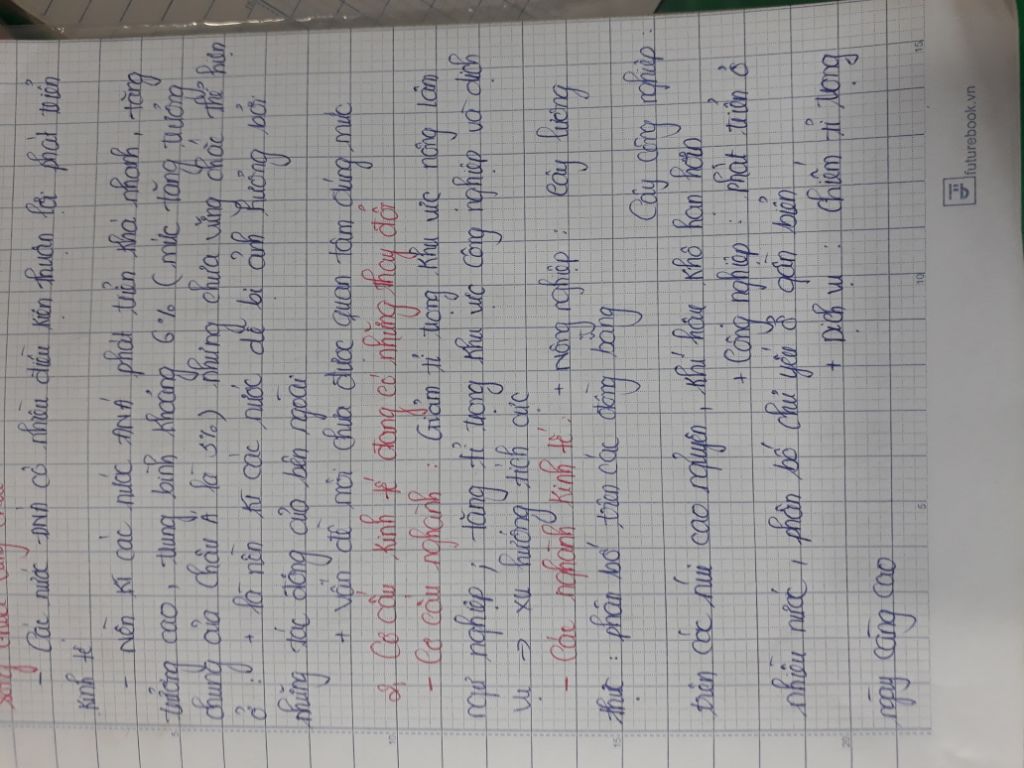 - Các nước ĐNÁ có nhiều điều kiện thuận lợi phát triển
kinh tế
- Nền KT các nước ĐNÁ phát triển khá nhanh, tăng
trưởng cao, trung bình khoảng 6% (mức tăng trưởng
chung của châu Á là 3%) nhưng chưa vững chắc thể hiện
ở: + là nền KT các nước dễ bị ảnh hưởng bởi
những tác động của bên ngoài
+ Vấn đề môi chưa được quan tâm đúng mức
2, Cơ cấu kinh tế đang có những thay đổi
- Cơ cấu nghành: Giảm tỉ trọng khu vực nông lâm
ngư nghiệp; tăng tỉ trọng khu vực công nghiệp và dịch
vụ => xu hướng tích cực
- Các nghành kinh tế: + Nông nghiệp: Cây lương
thực: phân bố trên các đồng bằng
Cây công nghiệp:
trên các núi cao nguyên, khí hậu khô hạn hơn
+ Công nghiệp: phát triển ở
nhiều nước, phân bố chủ yếu ở gần biển
+ Dịch vụ: chiếm tỉ trọng
ngày càng cao
futurebook.vn
5
10
15
5
10
15
20